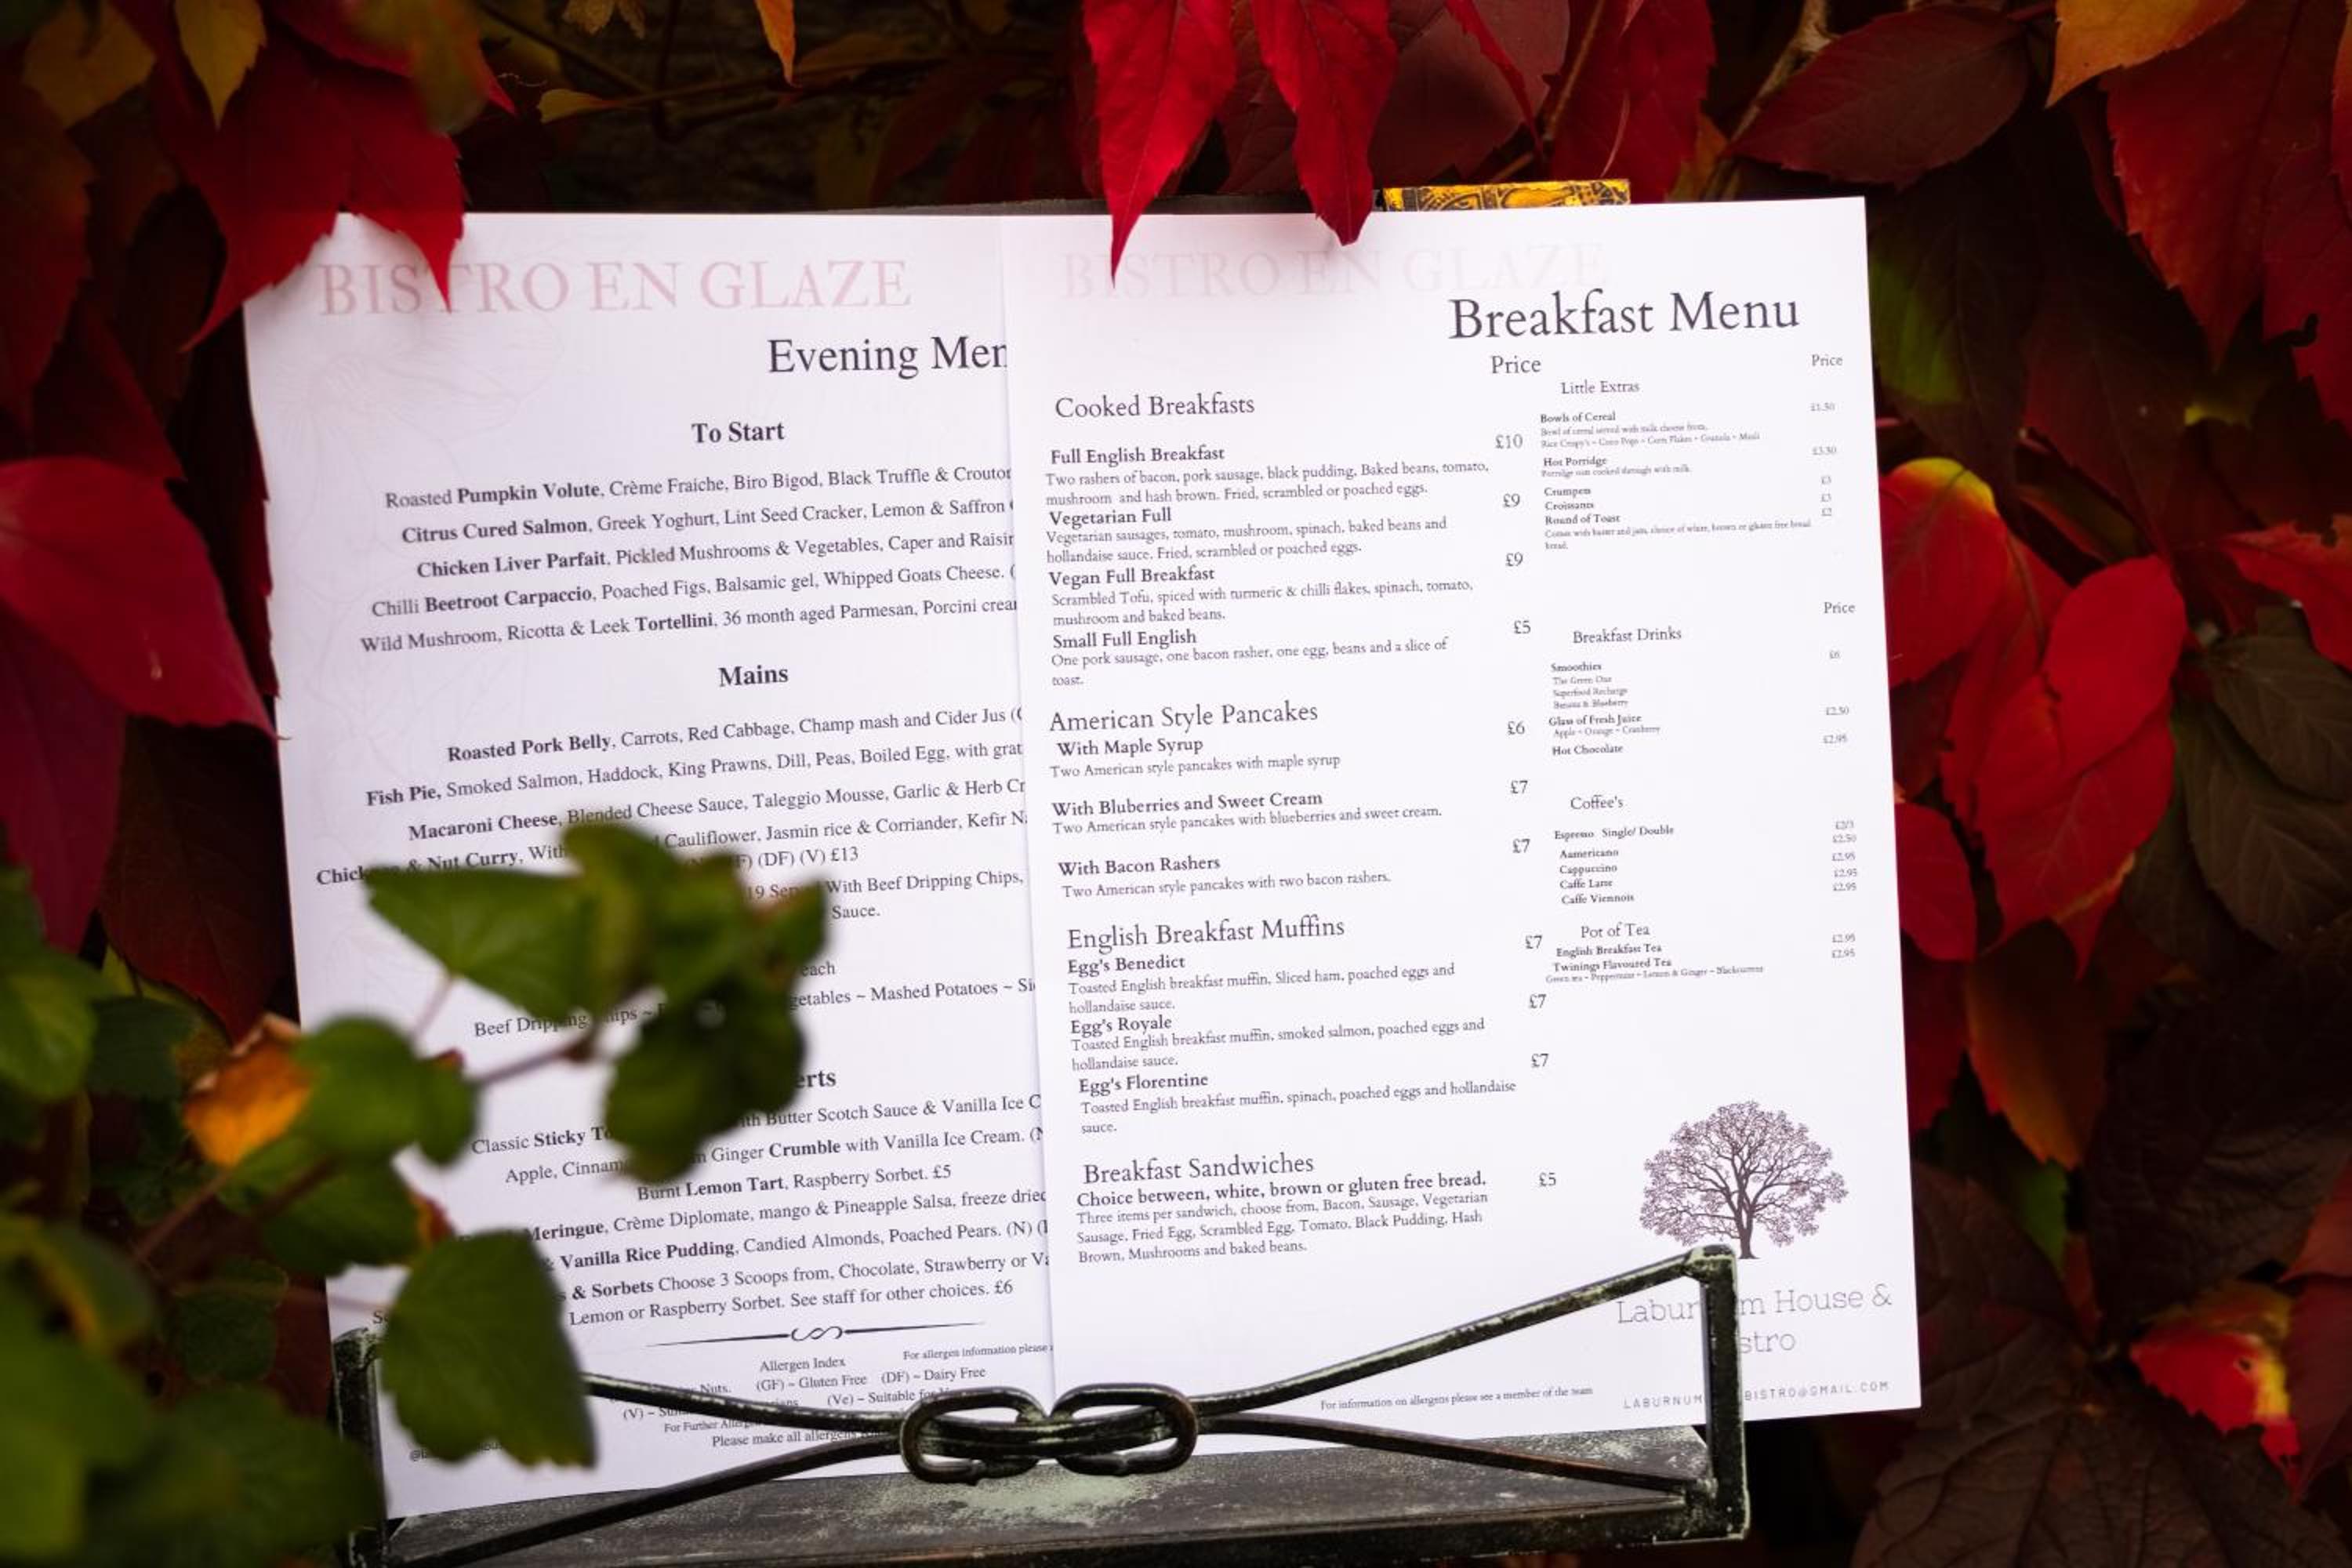 BISTRO EN GLAZE
Evening Men
To Start
Roasted Pumpkin Volute, Crème Fraiche, Biro Bigod, Black Truffle & Crouton
Citrus Cured Salmon, Greek Yoghurt, Lint Seed Cracker, Lemon & Saffron
Chicken Liver Parfait, Pickled Mushrooms & Vegetables, Caper and Raisin
Chilli Beetroot Carpaccio, Poached Figs, Balsamic gel, Whipped Goats Cheese. (
Wild Mushroom, Ricotta & Leek Tortellini, 36 month aged Parmesan, Porcini crea
Mains
Roasted Pork Belly, Carrots, Red Cabbage, Champ mash and Cider Jus (
Fish Pie, Smoked Salmon, Haddock, King Prawns, Dill, Peas, Boiled Egg, with grat
Macaroni Cheese, Blended Cheese Sauce, Taleggio Mousse, Garlic & Herb Cr
& Nut Curry, With Cauliflower, Jasmin rice & Corriander, Kefir N
(DF) (V) £13
With Beef Dripping Chips,
Sauce.
each
Beef Dripping ~ Mashed Potatoes ~
erts
Classic Sticky Butter Scotch Sauce & Vanilla Ice C
Apple, Ginger Crumble with Vanilla Ice Cream. (N
Burnt Lemon Tart, Raspberry Sorbet. £5
Meringue, Crème Diplomate, mango & Pineapple Salsa, freeze dried
& Vanilla Rice Pudding, Candied Almonds, Poached Pears. (N) (
& Sorbets Choose 3 Scoops from, Chocolate, Strawberry or Va
Lemon or Raspberry Sorbet. See staff for other choices. £6
For allergen information please
Allergen Index
Nuts. (GF) ~ Gluten Free (DF) ~ Dairy Free
(V) ~ (Ve) ~ Suitable for
For Further
Please make all allergens
BISTRO EN GLAZE
Breakfast Menu
Price
Cooked Breakfasts
Full English Breakfast £10
Two rashers of bacon, pork sausage, black pudding, Baked beans, tomato,
mushroom and hash brown. Fried, scrambled or poached eggs.
Vegetarian Full £9
Vegetarian sausages, tomato, mushroom, spinach, baked beans and
hollandaise sauce. Fried, scrambled or poached eggs.
Vegan Full Breakfast £9
Scrambled Tofu, spiced with turmeric & chilli flakes, spinach, tomato,
mushroom and baked beans.
Small Full English £5
One pork sausage, one bacon rasher, one egg, beans and a slice of
toast.
American Style Pancakes
With Maple Syrup £6
Two American style pancakes with maple syrup
With Bluberries and Sweet Cream £7
Two American style pancakes with blueberries and sweet cream.
With Bacon Rashers £7
Two American style pancakes with two bacon rashers.
English Breakfast Muffins
Egg's Benedict £7
Toasted English breakfast muffin, Sliced ham, poached eggs and
hollandaise sauce.
Egg's Royale £7
Toasted English breakfast muffin, smoked salmon, poached eggs and
hollandaise sauce.
Egg's Florentine £7
Toasted English breakfast muffin, spinach, poached eggs and hollandaise
sauce.
Breakfast Sandwiches
Choice between, white, brown or gluten free bread. £5
Three items per sandwich, choose from, Bacon, Sausage, Vegetarian
Sausage, Fried Egg, Scrambled Egg, Tomato, Black Pudding, Hash
Brown, Mushrooms and baked beans.
Price
Little Extras
Bowls of Cereal £1.50
Bowl of cereal served with milk choose from,
Rice Crispy's ~ Coco Pops ~ Corn Flakes ~ Granola ~ Musli
Hot Porridge £3.50
Porridge oats cooked through with milk.
Crumpets £3
Croissants £3
Round of Toast £2
Comes with butter and jam, choice of white, brown or gluten free bread
bread.
Price
Breakfast Drinks
Smoothies £6
The Green One
Superfood Recharge
Banana & Blueberry
Glass of Fresh Juice £2.50
Apple ~ Orange ~ Cranberry
Hot Chocolate £2.95
Coffee's
Espresso Single/ Double £2/3
Aamericano £2.50
Cappuccino £2.95
Caffe Latte £2.95
Caffe Viennois £2.95
Pot of Tea
English Breakfast Tea £2.95
Twinings Flavoured Tea £2.95
Green tea ~ Peppermint ~ Lemon & Ginger ~ Blackcurrant
Labur m House &
stro
For information on allergens please see a member of the team
LABURNUM BISTRO@GMAIL.COM